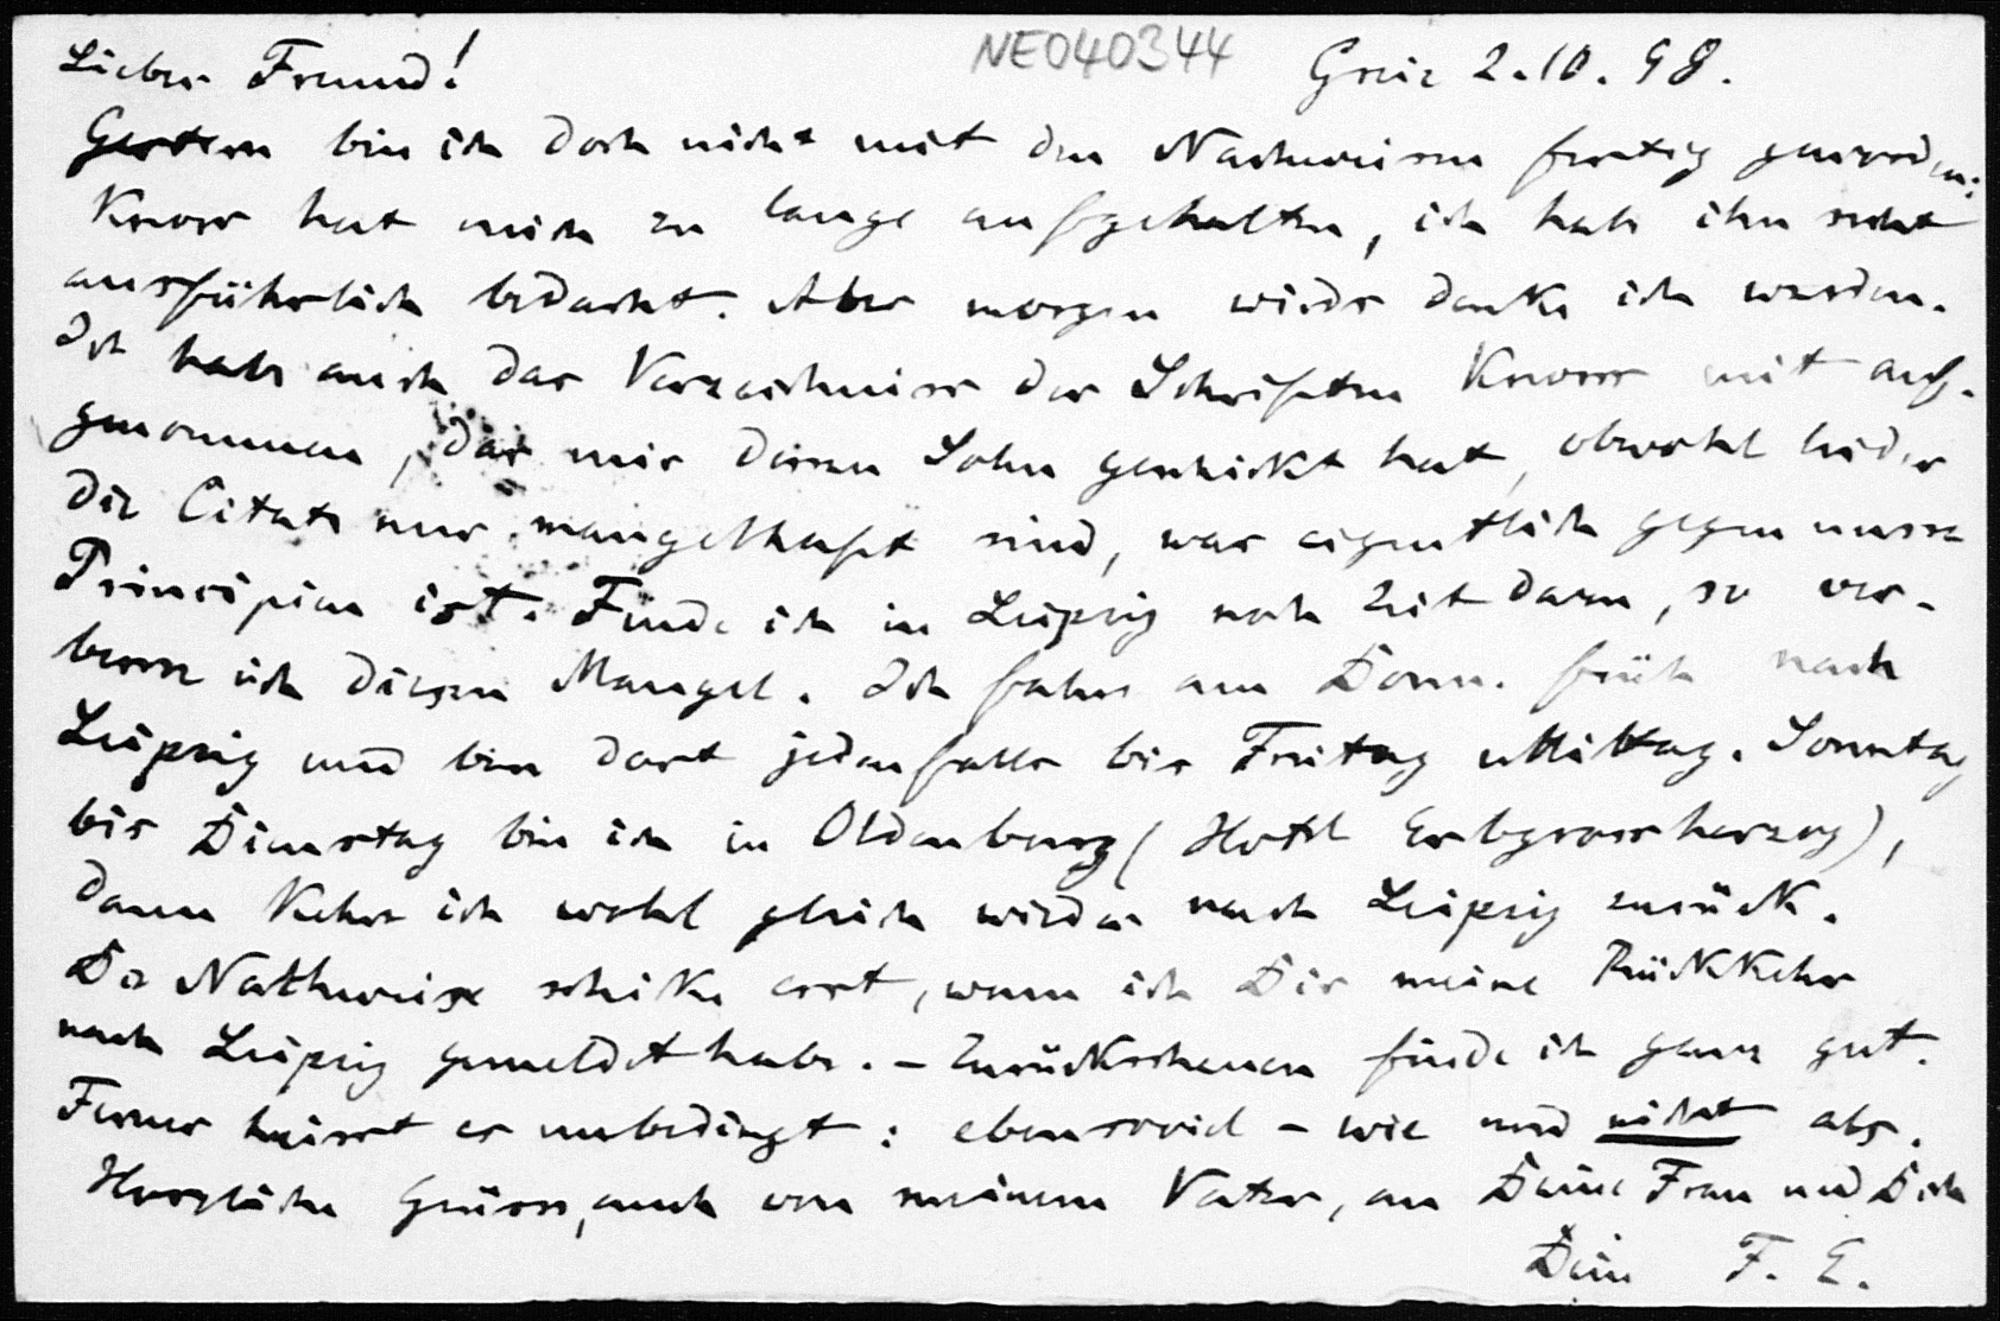 NE040344
Lieber Freund! Greiz 2.10.98.
Gestern bin ich doch nicht mit den Nachweisen fertig geworden;
Knorr hat mich zu lange aufgehalten, ich habe ihn recht
ausführlich bedacht. Aber morgen wirds denke ich werden.
Ich habe auch das Verzeichniss der Schriften Knorrs mit auf-
genommen, das mir dessen Sohn geschickt hat, obwohl leider
die Citate nur mangelhaft sind, was eigentlich gegen unsre
Principien ist. Finde ich in Leipzig noch Zeit dazu, so ver-
bessre ich diesen Mangel. Ich fahre am Donn. früh nach
Leipzig und bin dort jedenfalls bis Freitag Mittag. Sonntag
bis Dienstag bin ich in Oldenburg (Hotel Erbgrossherzog),
dann kehre ich wohl gleich wieder nach Leipzig zurück.
Die Nachweise schicke erst, wenn ich Dir meine Rückkehr
nach Leipzig gemeldet habe. – Zurückscheuen finde ich ganz gut.
Ferner heisst es unbedingt: ebensoviel – wie und nicht als.
Herzliche Grüsse, auch von meinem Vater, an Deine Frau und Dich
Dein F. E.